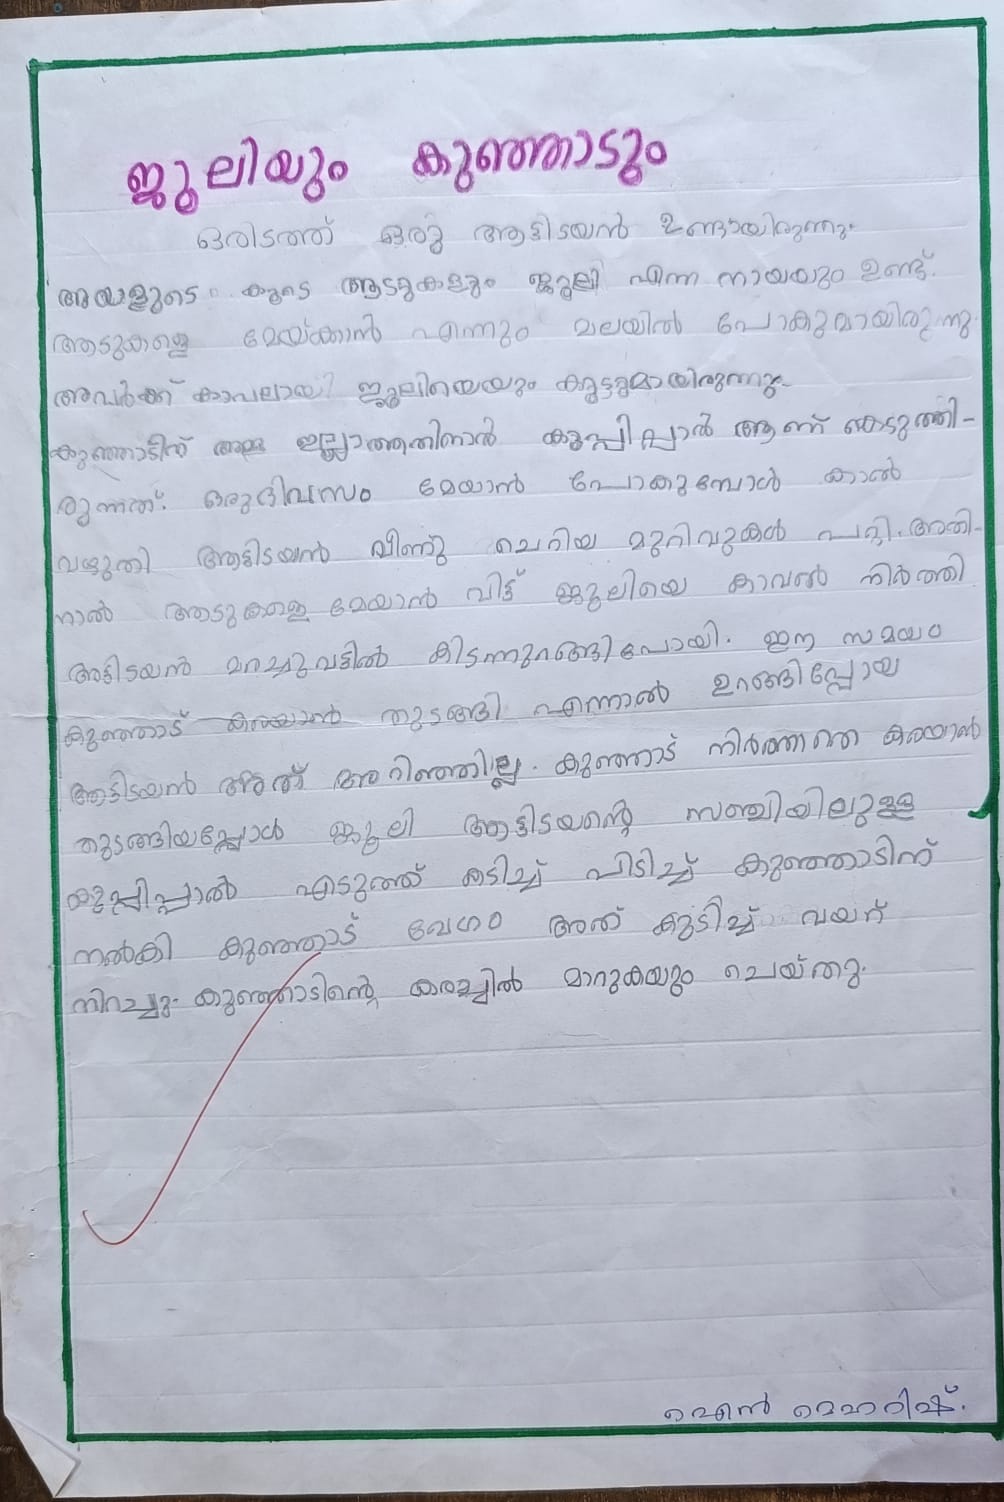 ജൂലിയും കുഞ്ഞാടും
ഒരിടത്ത് ഒരു ആട്ടിടയൻ ഉണ്ടായിരുന്നു.
അയാളുടെ കൂടെ ആടുകളും ജൂലി എന്ന നായയും ഉണ്ട്.
ആടുകളെ മേയ്ക്കാൻ എന്നും മലയിൽ പോകുമായിരുന്നു.
അവർക്ക് കാവലായി ജൂലിയെയും കൂട്ടുമായിരുന്നു.
കുഞ്ഞാടിന് അമ്മ ഇല്ലാത്തതിനാൽ കുപ്പിപ്പാൽ ആണ് കൊടുത്തി-
രുന്നത്. ഒരുദിവസം മേയാൻ പോകുമ്പോൾ കാൽ
വഴുതി ആട്ടിടയൻ വീണു ചെറിയ മുറിവുകൾ പറ്റി. അതി-
നാൽ ആടുകളെ മേയാൻ വിട്ട് ജൂലിയെ കാവൽ നിർത്തി
ആട്ടിടയൻ മരച്ചുവട്ടിൽ കിടന്നുറങ്ങി പോയി. ഈ സമയം
കുഞ്ഞാട് കരയാൻ തുടങ്ങി എന്നാൽ ഉറങ്ങിപ്പോയ
ആട്ടിടയൻ അത് അറിഞ്ഞില്ല. കുഞ്ഞാട് നിർത്താതെ കരയാൻ
തുടങ്ങിയപ്പോൾ ജൂലി ആട്ടിടയന്റെ സഞ്ചിയിലുള്ള
കുപ്പിപ്പാൽ എടുത്ത് കടിച്ച് പിടിച്ച് കുഞ്ഞാടിന്
നൽകി കുഞ്ഞാട് വേഗം അത് കുടിച്ച് വയറ്
നിറച്ചു. കുഞ്ഞാടിന്റെ കരച്ചിൽ മാറുകയും ചെയ്തു.